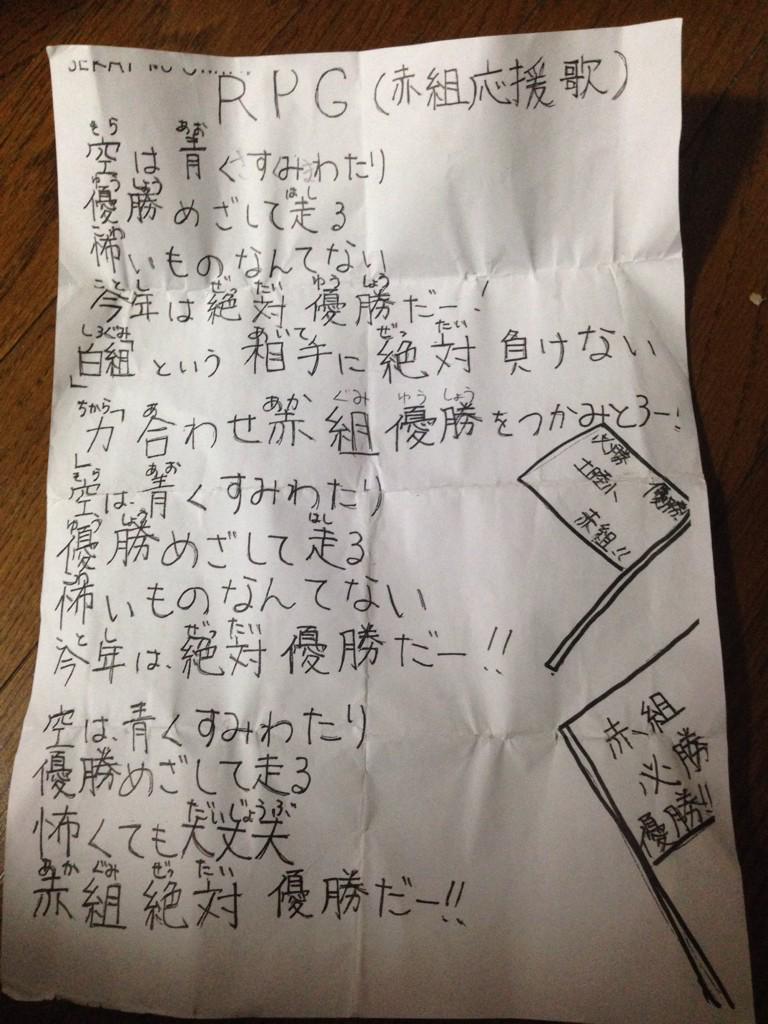 SEKAI NO
RPG(赤組応援歌)
空は青くすみわたり
優勝めざして走る
怖いものなんてない
今年は絶対優勝だー!
「白組」という相手に絶対負けない
「力」合わせ赤組優勝をつかみとろー!
空は、青くすみわたり
優勝めざして走る
怖いものなんてない
今年は、絶対優勝だー!!
空は、青くすみわたり
優勝めざして走る
怖くても大丈夫
赤組絶対優勝だー!!
必勝
優勝!!
土陸小
赤組!!
赤組
必勝
優勝!!